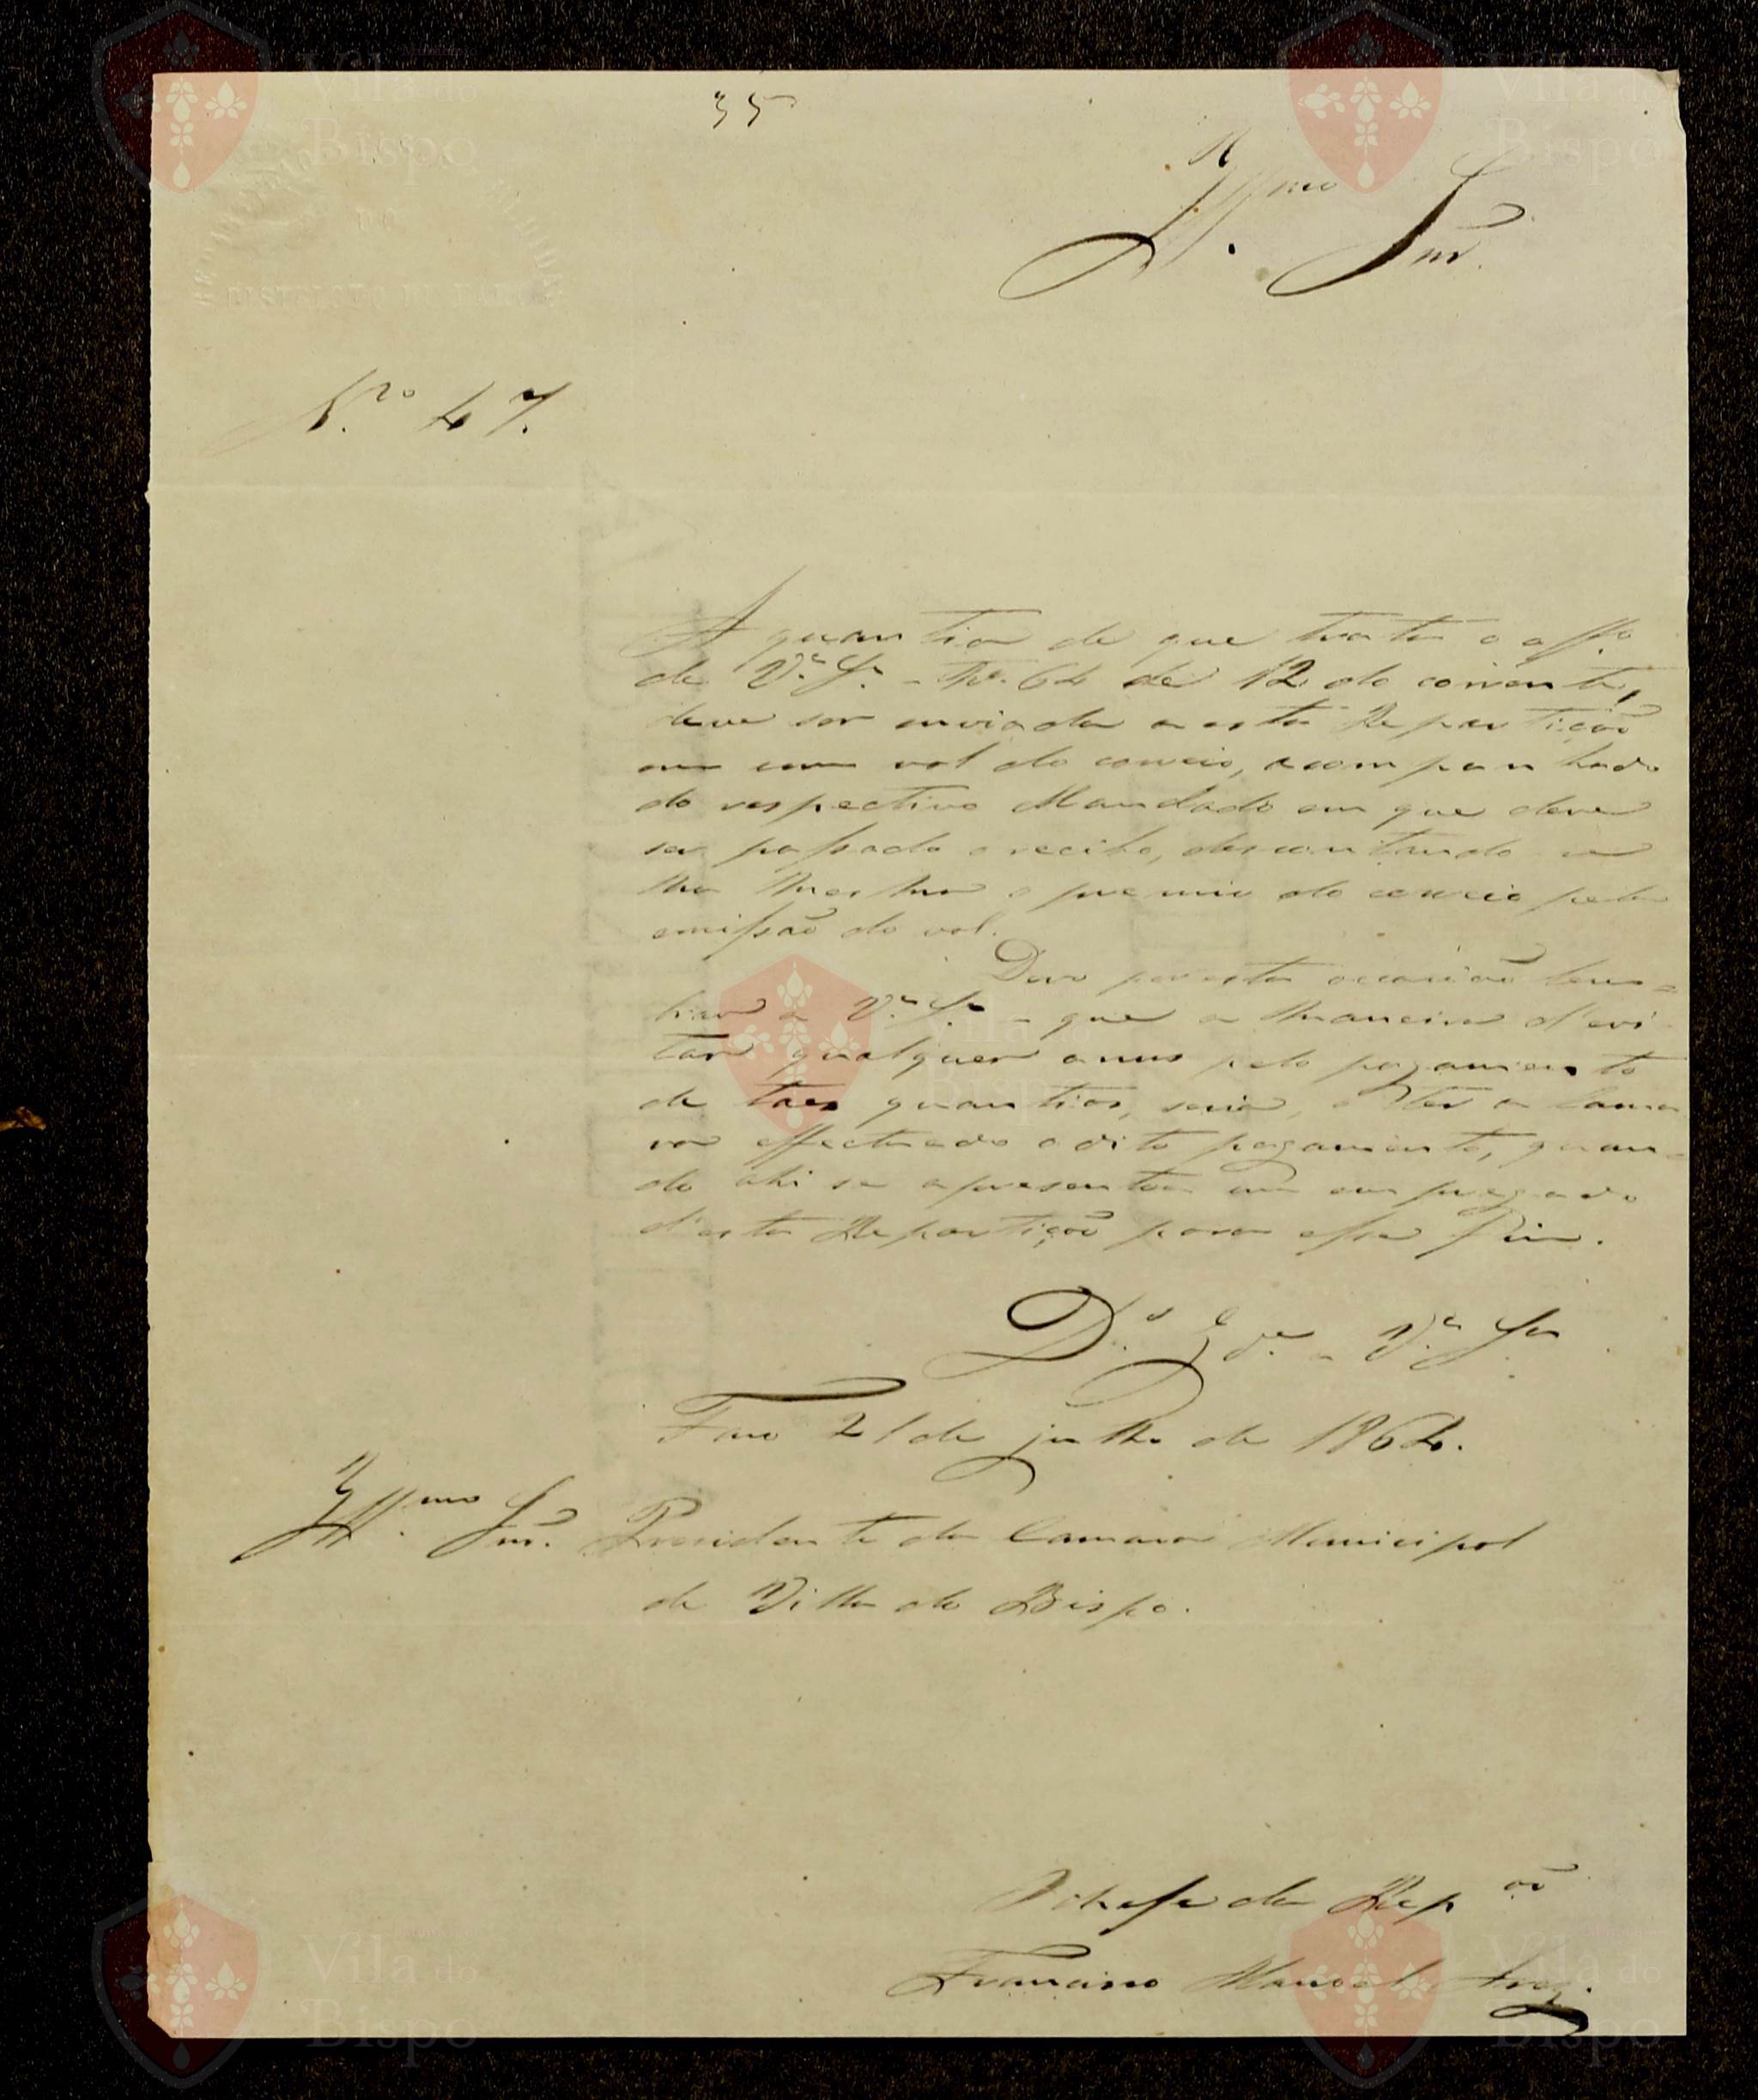 35
Ill.mo Snr.
N.o 47.
A quantia de que trata o off.o
de V.a S.a - N.o 64 de 12 do corrente,
deve ser enviada a esta Repartição
em um val do correio, acompanhado
do respectivo Mandado em que deve
ser passado o recibo, descontando se
no mesmo o premio do correio pela
emissão do val.
Devo por esta occasião lem=
brar a V.a S.a - que a maneira d'evi
tar qualquer onus pelo pagamento
de taes quantias, seria, o ter a Cama
ra effectuado o dito pagamento, quan=
do ahi se apresentar um empregado
d'esta Repartição para esse fim.
D.s G.de a V.a S.a
Faro 21 de julho de 1864.
Ill.mo Snr. Presidente da Camara Municipal
de Villa do Bispo.
O chefe da Rep.ão
Francisco Manoel
Vila do
Bispo